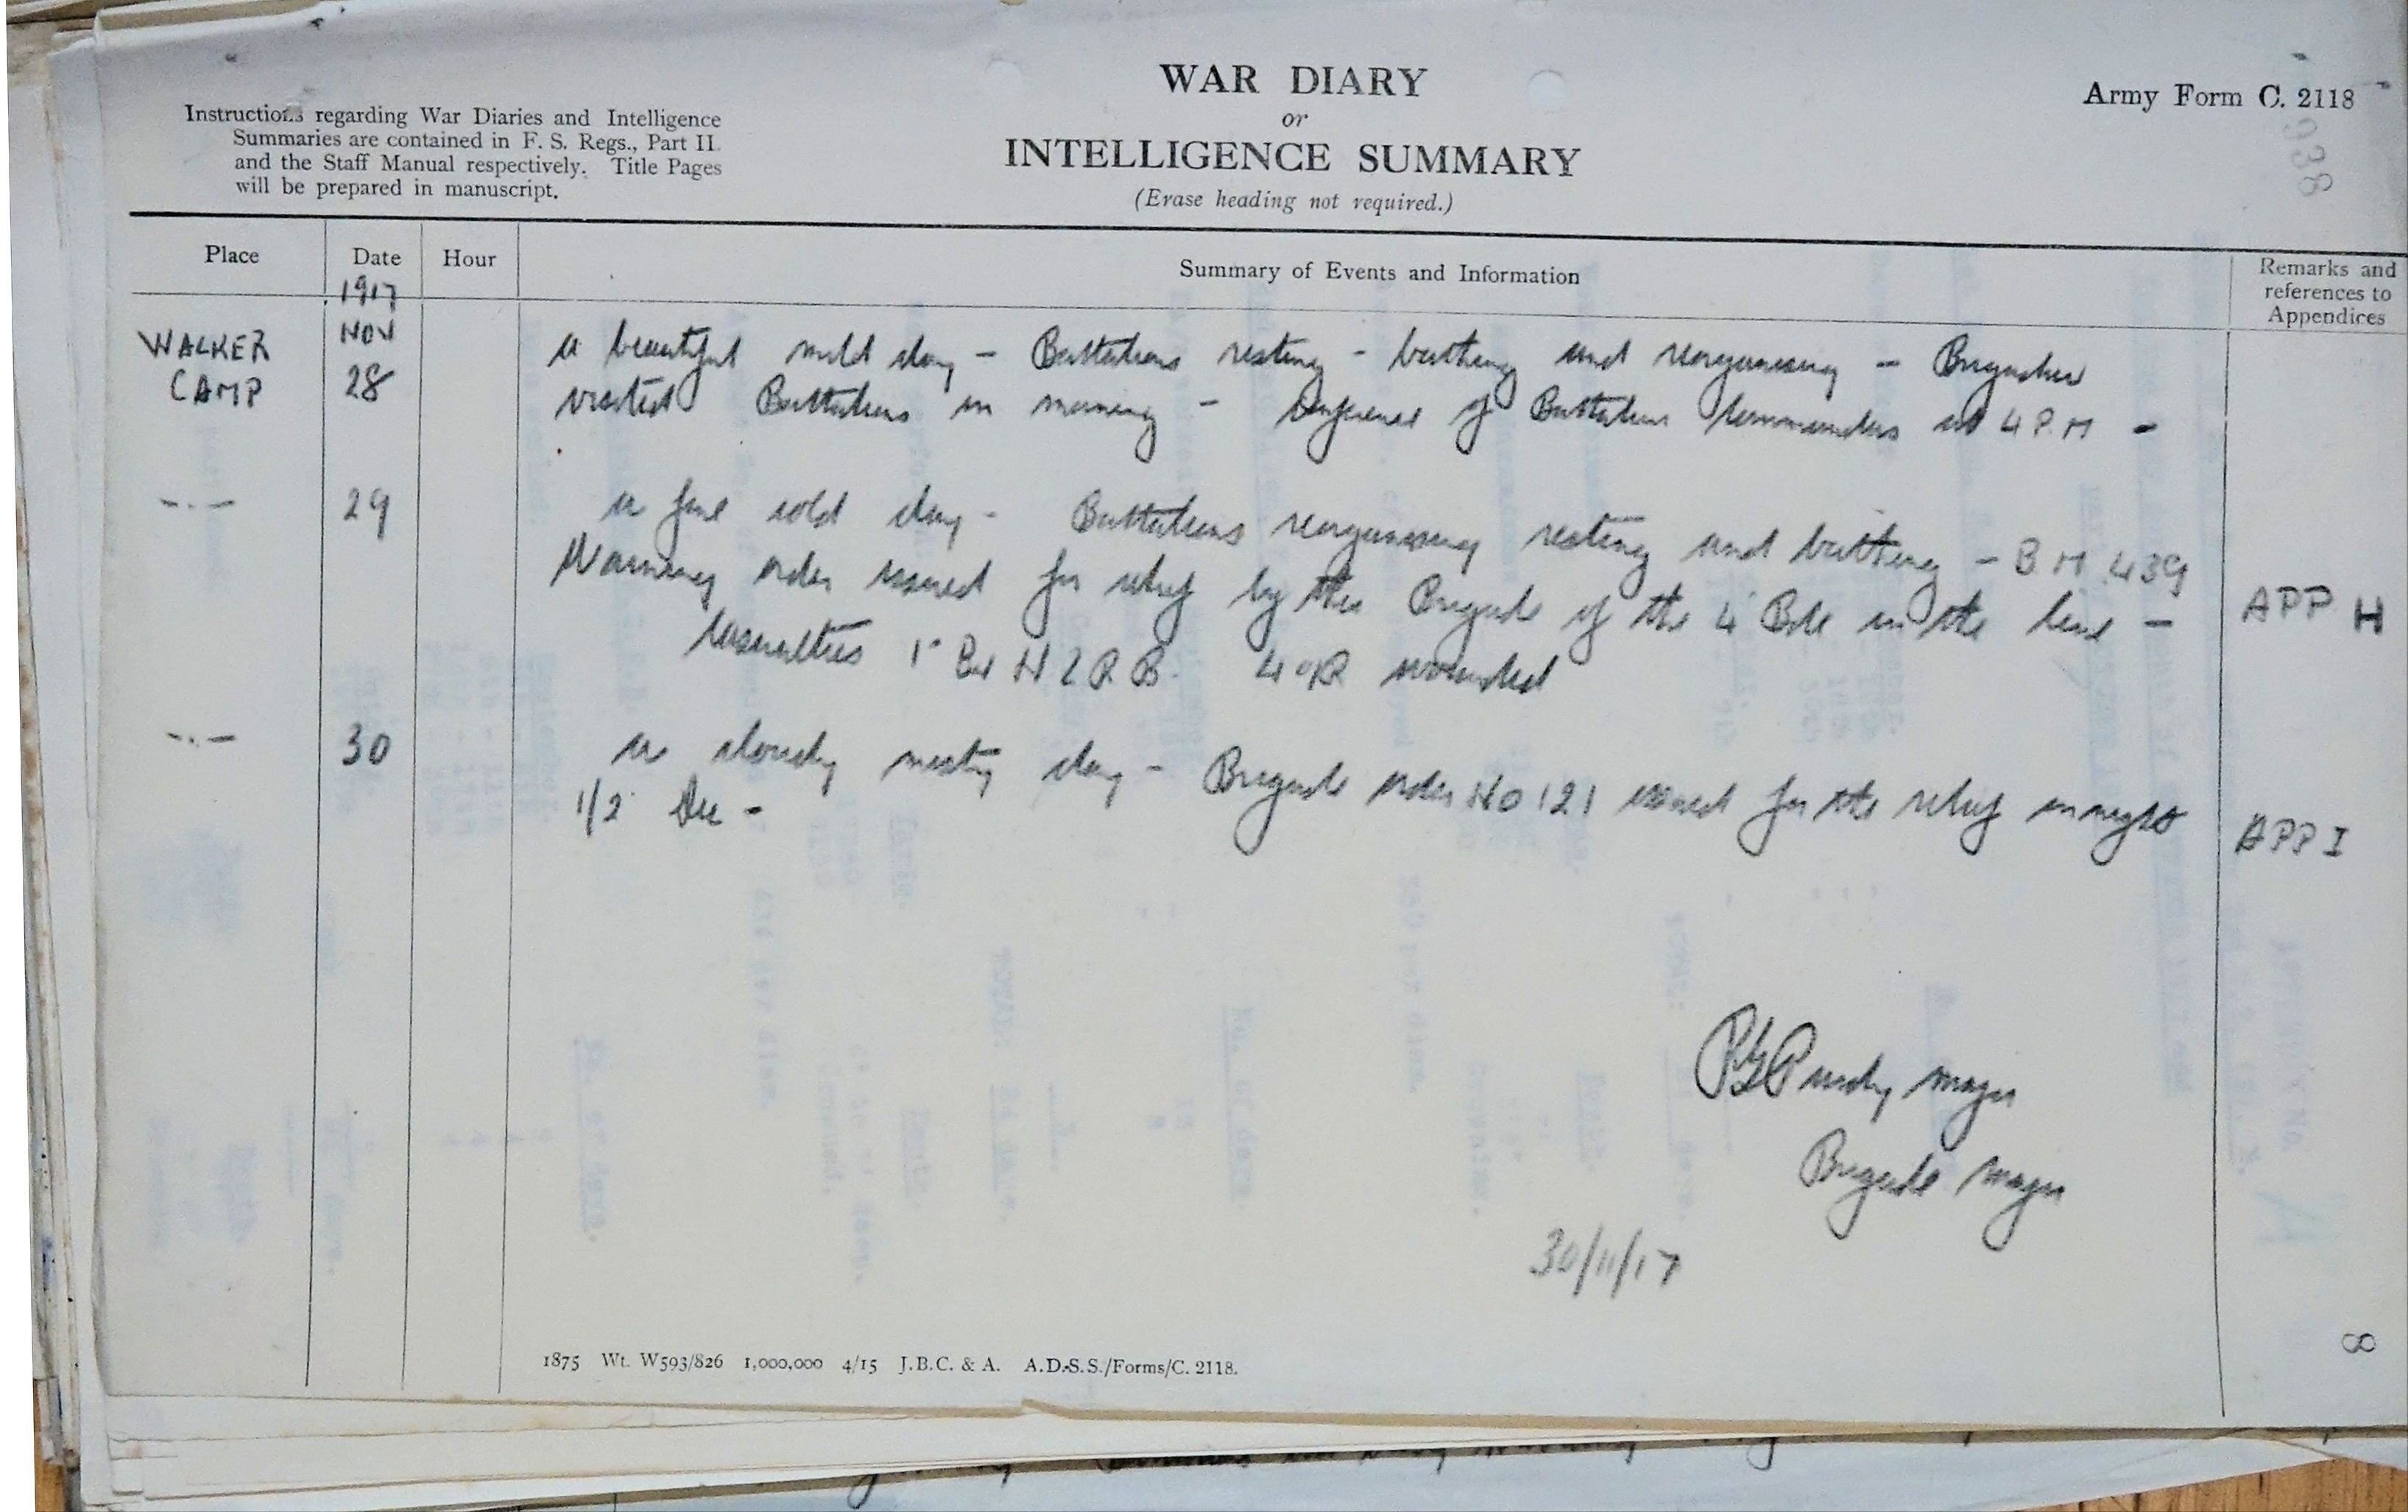 WAR DIARY
or
INTELLIGENCE SUMMARY
(Erase heading not required.)
Army Form C. 2118
938
Instructions regarding War Diaries and Intelligence
Summaries are contained in F. S. Regs., Part II.
and the Staff Manual respectively. Title Pages
will be prepared in manuscript.
Place Date Hour Summary of Events and Information Remarks and
references to
Appendices
1917
WALKER NOV a beautiful mild day - Battalions resting - bathing and reorganising - Brigadier
CAMP 28 visited Battalions in morning - Conference of Battalion Commanders at 4 P.M -
-.- 29 a fine cold day - Battalions reorganising resting and bathing - BM 439
Warning order issued for relief by this Brigade of the 4 Bde in the line - APP H
Casualties 1 Bn NZRB. 4 OR wounded
-.- 30 a cloudy misty day - Brigade order No 121 issued for the relief on night
1/2 Dec - APP I
Purdy Major
Brigade Major
30/11/17
8
1875 Wt. W593/826 1,000,000 4/15 J.B.C. & A. A.D.S.S./Forms/C. 2118.